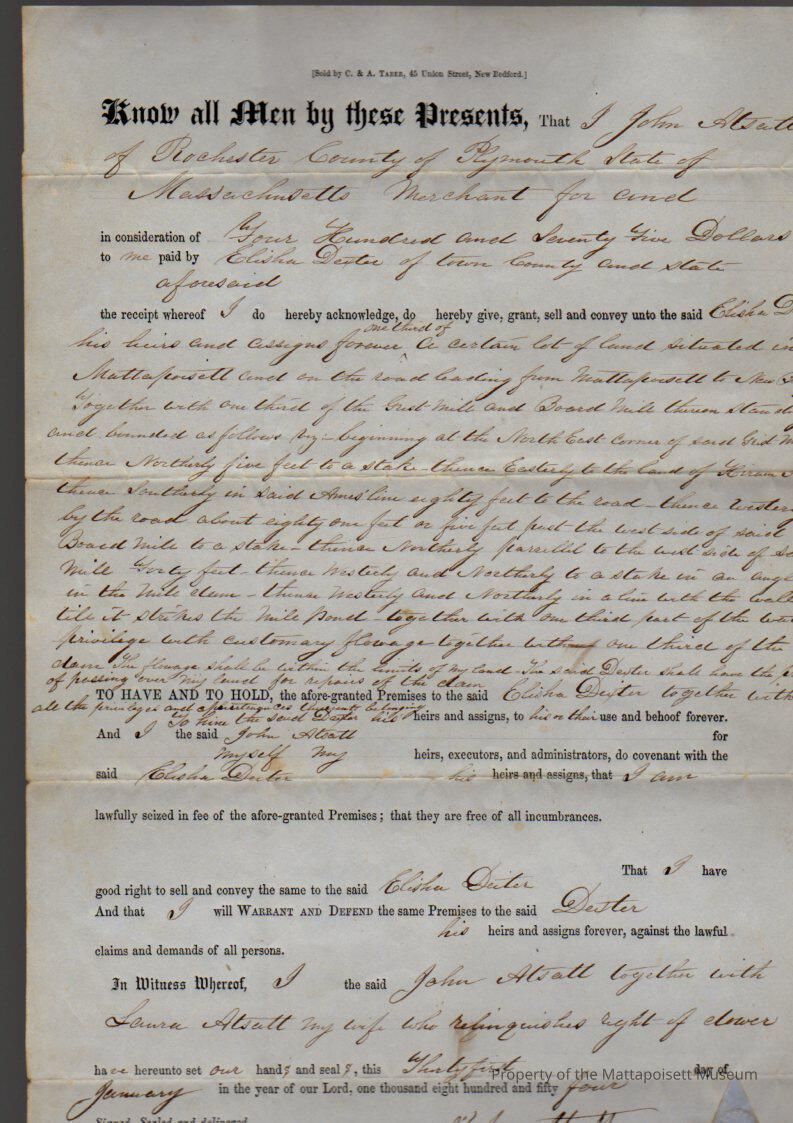 [Sold by C. & A. TABER, 45 Union Street, New Bedford.]
Know all Men by these Presents, That I John Atsatt
of Rochester County of Plymouth State of
Massachusetts Merchant for and
in consideration of Four Hundred and Seventy Five Dollars
to me paid by Elisha Dexter of town County and state
aforesaid
the receipt whereof I do hereby acknowledge, do hereby give, grant, sell and convey unto the said Elisha D
one third of
his heirs and assigns forever ^ a certain lot of land situated in
Mattapoisett and on the road leading from Mattapoisett to New
Together with one third of the Grist Mill and Board Mill thereon stand
and bounded as follows viz - beginning at the North East corner of said Grist M
thence Northerly five feet to a stake - thence Easterly to the land of Hiram
thence Southerly in said Ames line eighty feet to the road - thence Wester
by the road about eighty one feet or five feet past the west side of said
Board Mill to a stake - thence Northerly parallel to the west side of
Mill Forty feet - thence Westerly and Northerly to a stake in an
in the Mill dam - thence Westerly and Northerly in a line with the wall
till it strikes the Mill Pond - together with one third part of the
privilege with customary flowage together with one third of the
dam The flowage shall be within the limits of my land - The said Dexter shall have the
of passing over my land for repairs of the dam
TO HAVE AND TO HOLD, the afore-granted Premises to the said Elisha Dexter together with
all the privileges and appurtenances thereunto belonging
To him the said Dexter his heirs and assigns, to his or their use and behoof forever.
And I the said John Atsatt for
myself my heirs, executors, and administrators, do covenant with the
said Elisha Dexter his heirs and assigns, that I am
lawfully seized in fee of the afore-granted Premises; that they are free of all incumbrances.
That I have
good right to sell and convey the same to the said Elisha Dexter
And that I will WARRANT AND DEFEND the same Premises to the said Dexter
his heirs and assigns forever, against the lawful
claims and demands of all persons.
In Witness Whereof, I the said John Atsatt together with
Laura Atsatt my wife who relinquishes right of dower
have hereunto set our hands and seals, this Thirty first day of
January in the year of our Lord, one thousand eight hundred and fifty four
Signed, Sealed and delivered
Property of the Mattapoisett Museum